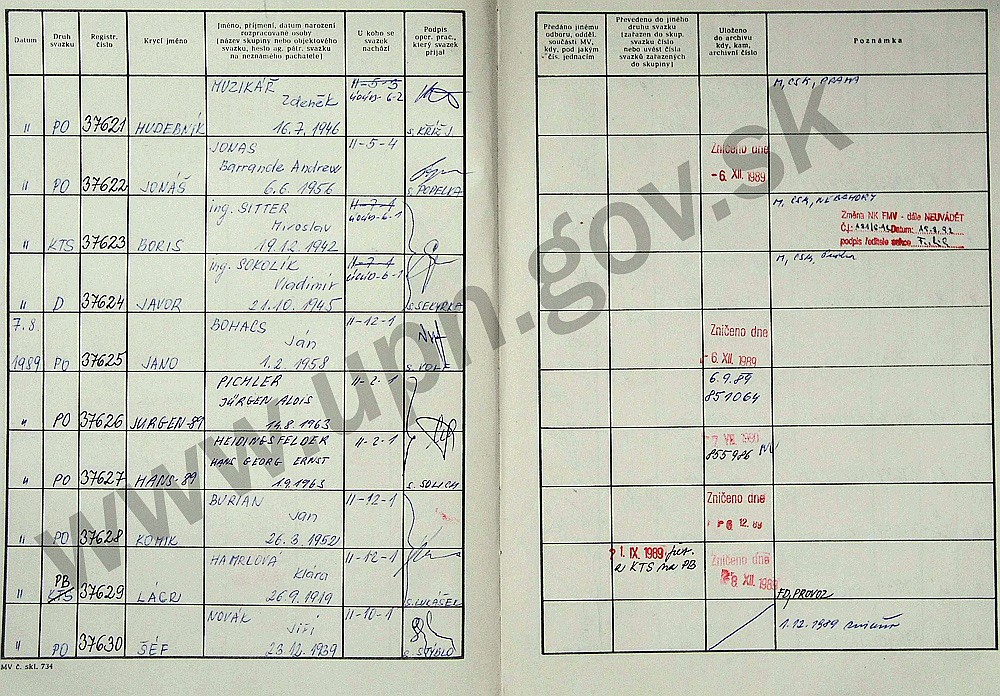 Datum
Druh svazku
Registr. číslo
Krycí jméno
Jméno, příjmení, datum narození
rozpracované osoby
(název skupiny nebo objektového
svazku, heslo ag. pátr. svazku
na neznámého pachatele)
U koho se
svazek
nachází
Podpis
oper. prac.,
který svazek
přijal
Předáno jinému
odboru, odděl.
součásti MV,
kdy, pod jakým
čís. jednacím
Převedeno do jiného
druhu svazku
(zařazen do skup.
svazku číslo
nebo uvést čísla
svazků zařazených
do skupiny)
Uloženo
do archivu
kdy, kam,
archivní číslo
Poznámka
MUZIKÁŘ II-5-3
Zdeněk 6-2
" PO 37621 HUDEBNÍK 16.7.1946 s. KŘÍŽ J.
M, ČSK, PRAHA
JONAS II-5-4
Barrande Andrew
" PO 37622 JONÁŠ 6.6.1956 s. POPELKA
Zničeno dne
-6. XII. 1989
ing. SITTER II-7-1
Miroslav 6-1
" KTS 37623 BORIS 19.12.1942
M, ČSK,
Změna NK FMV - dále NEUVÁDĚT
Č.j.: Datum:
podpis ředitele
ing. SOKOLÍK II-7-1
Vladimír 6-1
" D 37624 JAVOR 21.10.1945 s. SEKYRKA
M, ČSK,
7.8. BOHACS II-12-1
Ján
1989 PO 37625 JANO 1.2.1958
Zničeno dne
-6. XII. 1989
PICHLER II-2-1
JÜRGEN ALOIS
" PO 37626 JURGEN-89 14.8.1963
6.9.89
851064
HEIDINGSFELDER II-2-1
HANS GEORG ERNST
" PO 37627 HANS-89 1.9.1963 s. SOLICH
855986
BURIAN II-12-1
Jan
" PO 37628 KOMIK 26.3.1952
Zničeno dne
-6 12. 89
HAMRLOVÁ II-12-1
PB Klára
" KTS 37629 LÁGR 26.9.1919 s. LUKÁŠEK
1. IX. 1989
z KTS na PB
Zničeno dne
8. XII. 1989
FD, PROVOZ
NOVÁK II-10-1
Jiří
" PO 37630 ŠÉF 23.12.1939 s. STÝBLO
1.12.1989
MV č. skl. 734
www.upn.gov.sk